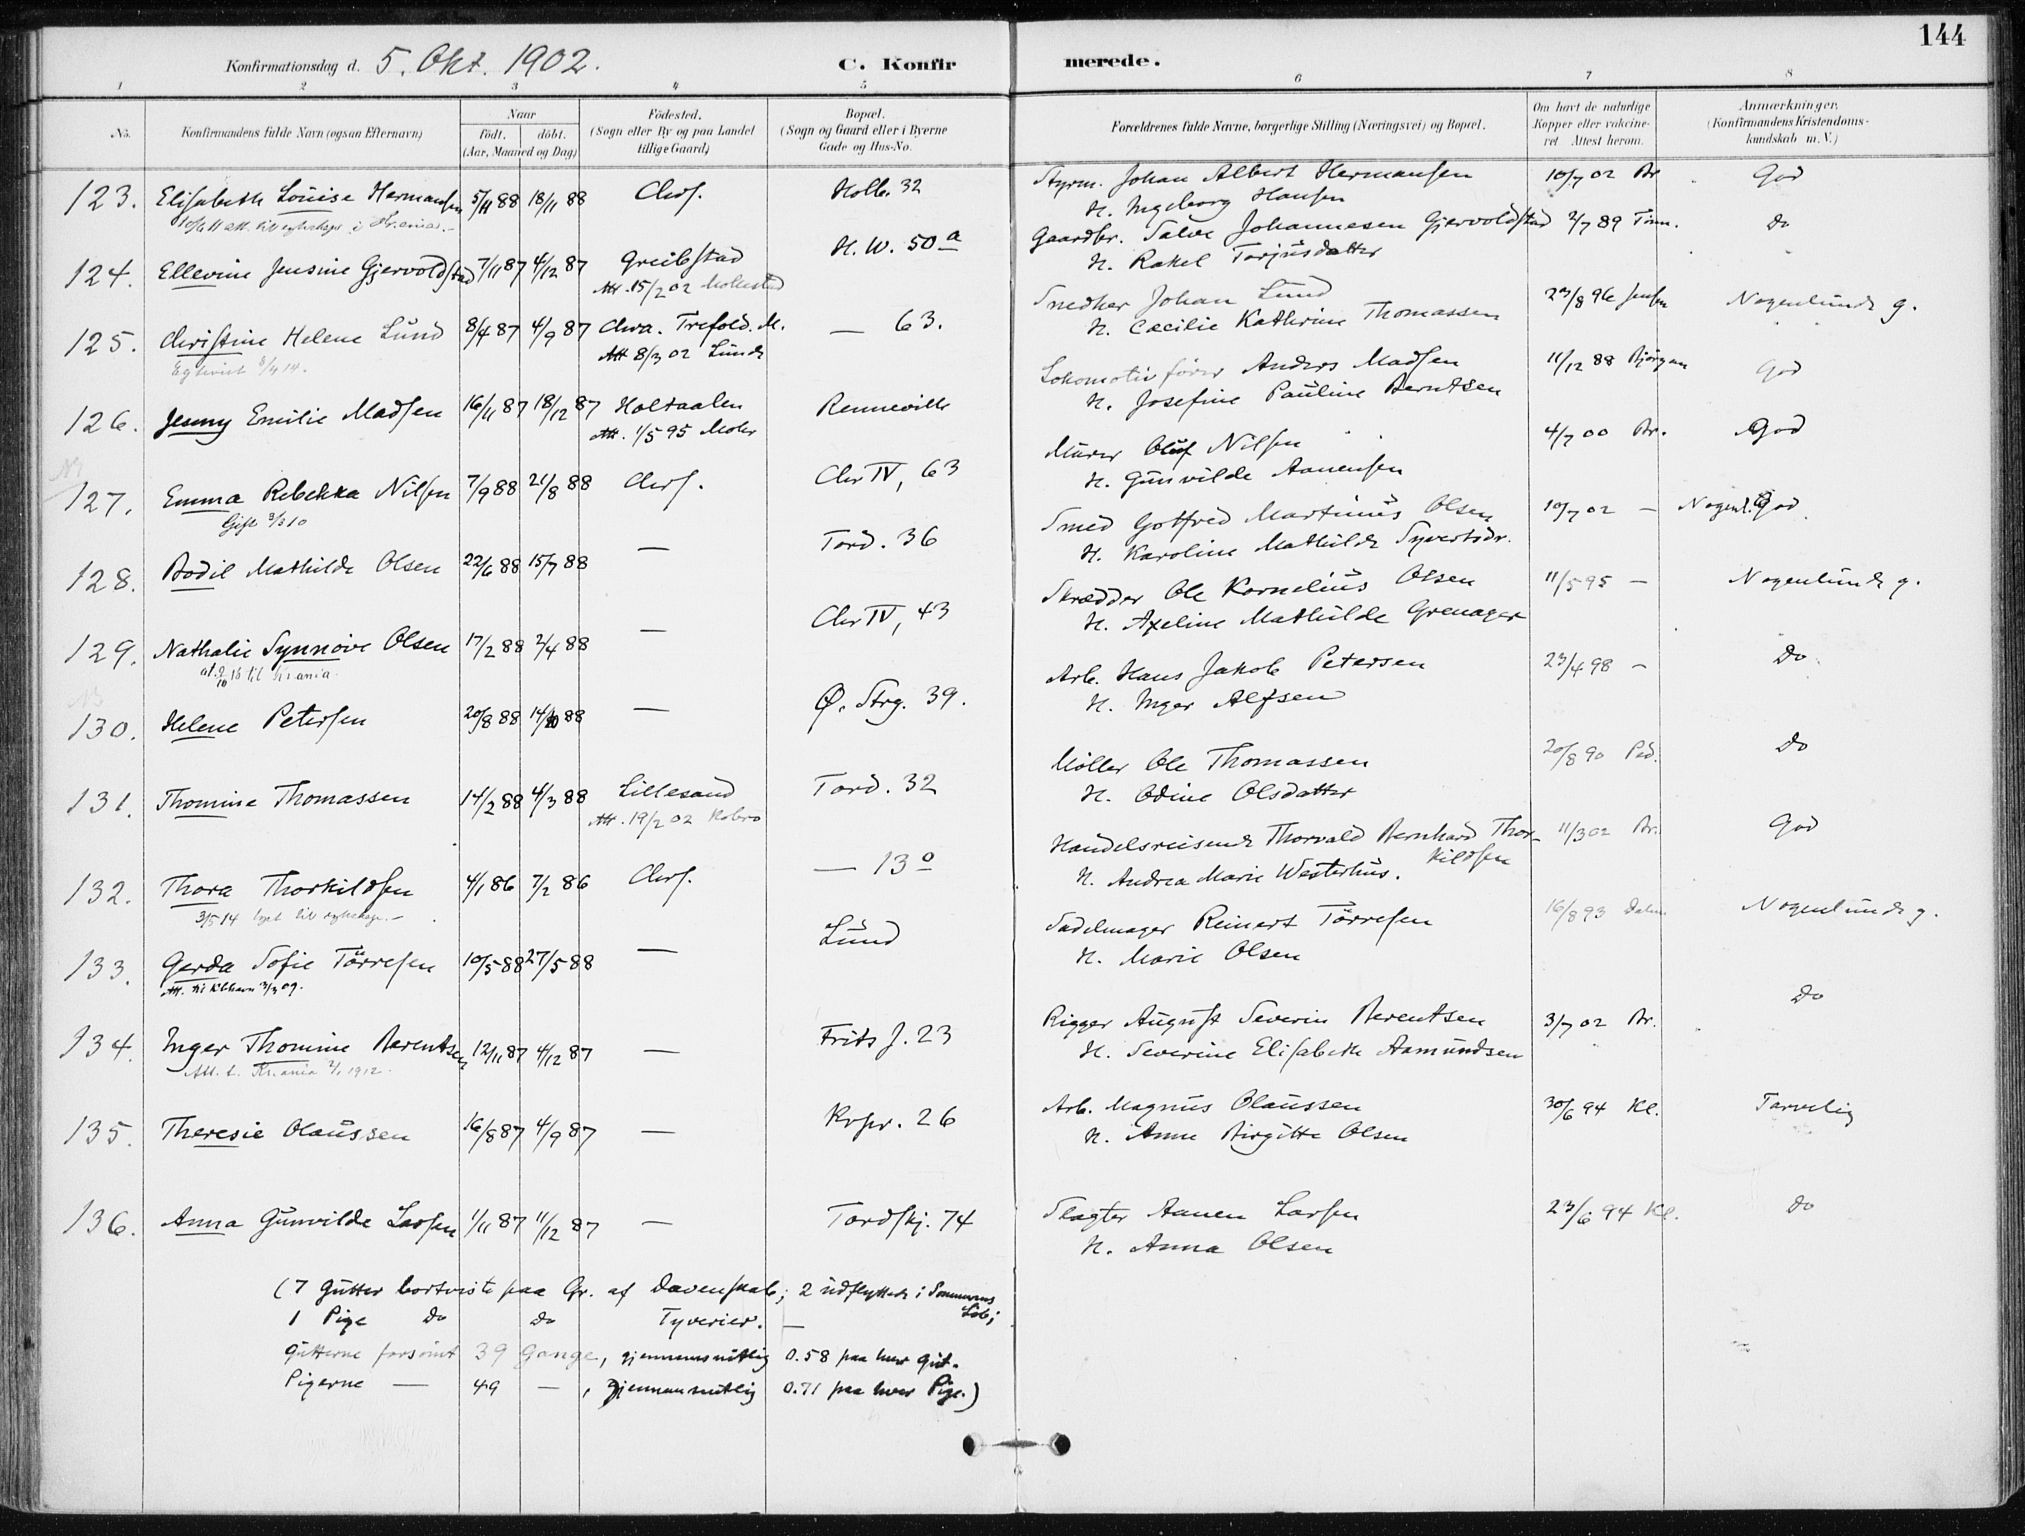 144
Konfirmationsdag d. 5. Okt. 1902.
C. Konfirmerede.
1 2 3 4 5 6 7 8
No.
Konfirmandens fulde Navn (ogsaa Efternavn)
Naar
födt. döbt.
(Aar, Maaned og Dag)
Födested.
(Sogn eller By og paa Landet
tillige Gaard)
Bopæl.
(Sogn og Gaard eller i Byerne
Gade og Hus-No.
Forældrenes fulde Navne, borgerlige Stilling (Næringsvei) og Bopæl.
Om havt de naturlige
Kopper eller vakcine-
ret Attest herom.
Anmærkninger,
(Konfirmandens Kristendoms-
kundskab m. V.)
123. Elisabeth Louise Hermansen 5/11 88 18/11 88 Chrs. Holb. 32 Styrm. Johan Albert Hermansen 10/7 02 Br God
H. Ingeborg Hansen
124. Ellevine Jensine Gjervoldstad 7/11 87 4/12 87 Greibstad H. W. 50 a Gaardbr. Salve Johannesen Gjervoldstad 2/7 89 Do
Att. 15/2 02 H. Rakel Torjusdatter
125. Christine Helene Lund 8/4 87 4/9 87 Chra. Trefold. M. — 63. Snedker Johan Lund 23/8 96 Jensen Nogenlunde g.
Att 8/3 02 Lunde H. Cæcilie Kathrine Thomassen
126. Jenny Emilie Madsen 16/11 87 18/12 87 Holtaalen Rennevills Lokomotivförer Anders Madsen 11/12 88 God
Att. 1/5 95 Mohr H. Josefine Pauline Berntsen
127. Emma Rebekka Nilsen 7/9 88 21/8 88 Chrs. Chr IV, 63 Murer Oluf Nilsen 4/7 00 Br. God
Gift 3/3 10 H. Gunvilde Aanensen
128. Bodil Mathilde Olsen 22/6 88 15/7 88 — Tord. 36 Smed Gotfred Martinius Olsen 10/7 02 — Nogenl. God
H. Karoline Mathilde Syvertsdr.
129. Nathalie Synnöve Olsen 17/2 88 2/4 88 — Chr IV, 43 Skrædder Ole Kornelius Olsen 11/5 95 — Nogenlunde g.
H. Axeline Mathilde Grenager
130. Helene Petersen 20/8 88 14/10 88 — Ø. Strg. 39. Arb. Hans Jakob Petersen 23/4 98 — Do
H. Inger Alfsen
131. Thomine Thomassen 14/2 88 4/3 88 Lillesand Tord. 32 Møller Ole Thomassen 20/8 90 Ped. Do
Att. 19/2 02 H. Odine Olsdatter
132. Thora Thorkildsen 4/1 86 7/2 86 Chrs. — 13 o Handelsreisende Thorvald Bernhard Thor- 11/3 02 Br. God
kildsen
H. Andrea Marie Westerhus.
133. Gerda Sofie Törresen 10/5 88 27/5 88 — Lund Sadelmager Reinert Törresen 16/8 93 Nogenlunde g.
H. Marie Olsen
134. Inger Thomine Berentsen 12/11 87 4/12 87 — Frits J. 23 Rigger August Severin Berentsen 3/7 02 Br. Do
Att. t. Kr.ania 2/1 1912. H. Severine Elisabeth Aamundsen
135. Theresie Olaussen 16/8 87 4/9 87 — Krpr. 26 Arb. Magnus Olaussen 30/6 94 Kl. Tarvelig
H. Anne Birgitte Olsen
136. Anna Gunvilde Larsen 1/11 87 11/12 87 — Tordskj. 74 Slagter Aanen Larsen 23/6 94 Kl. Do
H. Anna Olsen
(7 Gutter bortviste paa Gr. af Dovenskab; 2 udflyttede i Sommerens
Löb;
1 Pige Do Do Tyverier. —
Gutterne forsömt 39 Gange, gjennemsnitlig 0.58 paa hver Gut.
Pigerne — 49 — , gjennemsnitlig 0.71 paa hver Pige.)